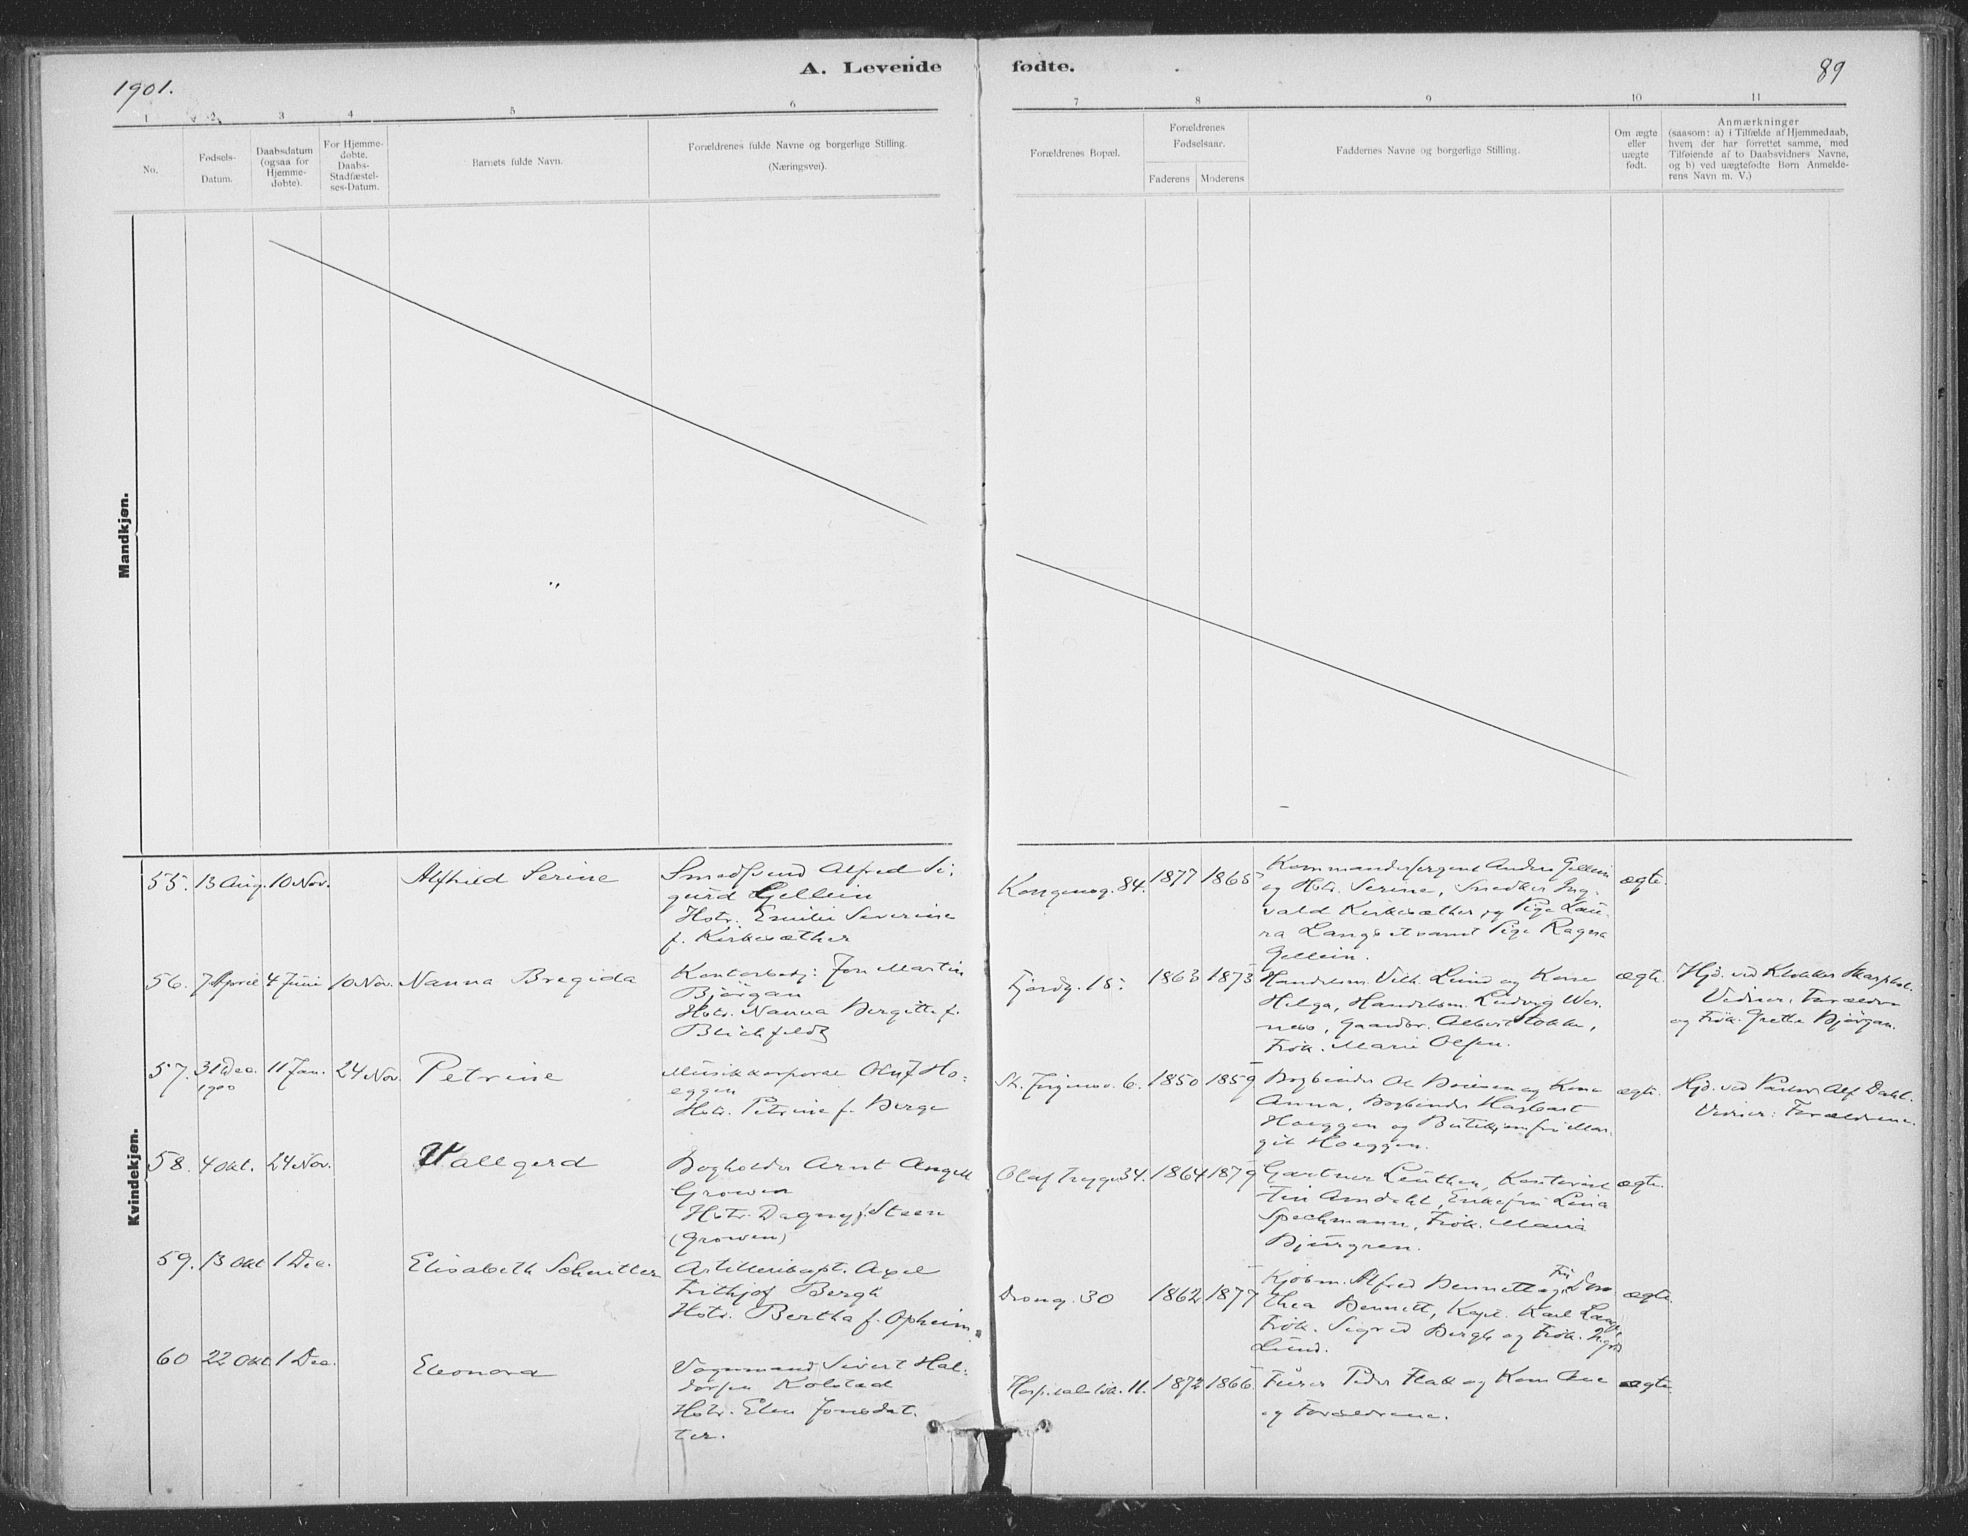 1901.
A. Levende fødte.
89
1 2 3 4 5 6 7 8 9 10 11
No.
Fødsels-
Datum.
Daabsdatum
(ogsaa for
Hjemme-
døbte).
For Hjemme-
døbte.
Daabs-
Stadfæstel-
ses-Datum.
Barnets fulde Navn.
Forældrenes fulde Navne og borgerlige Stilling.
(Næringsvei).
Forældrenes Bopæl.
Forældrenes
Fødselsaar.
Faderens Moderens
Faddernes Navne og borgerlige Stilling.
Om ægte
eller
uægte
født.
Anmærkninger
(saasom: a) i Tilfælde af Hjemmedaab,
hvem der har forrettet samme, med
Tilføiende af to Daabsvidners Navne,
og b) ved uægtefødte Børn Anmelde-
rens Navn m. V.)
Mandkjøn.
Kvindekjøn.
55. 13 Aug. 10 Nov.
Alfhild Serine
Smedsvend Alfred Si-
gurd Gellein
Hstr. Emilie Severine
f. Kirkesæther
Kongensg. 84. 1877 1865
Kommandersergent Anders Gellein
og Hstr. Serine, Snedker Ing-
vald Kirkesæther, og Pige Lau-
ra Langset samt Pige Ragna
Gellein.
ægte.
56. 7 April 4 Juni 10 Nov.
Nanna Bregida
Kontorbetj: Jon Martin
Bjørgan
Hstr. Nanna Bergitte f.
Blichfeldt
Fjordg. 18. 1863 1873
Handelsm. Vilh. Lund og Kone
Helga, Handelsm. Ludvig Wer-
ness, Gaardbr. Albert Stokke,
Frøk. Marie Olsen.
ægte
Hjd. ved Klokker
Vidner: Forældre
og Frøk. Grethe Bjørgan.
57. 31 Dec. 1900 11 Jan. 24 Nov.
Petrine
Musikkorporal Oluf Ho-
eggen
Hstr. Petrine f. Berge
St. Jørgensv. 6. 1850 1859
Bogbinder Ol. og Kone
Anna, Bogbinder Hagbart
Hoeggen og Butikjomfru Mar-
git Hoeggen.
ægte.
Hjd. ved Pastor Alf Dahl.
Vidner: Forældrene.
58. 4 Okt. 24 Nov.
Vallgerd
Bogholder Arnt Angell
Growen
Hstr. Dagny f. Steen
(Growen)
Olaf Trygv. 34. 1864 1879
Gartner Leuthen, Kontorist
Finn Amdahl, Enkefru Lina
Speckmann, Frøk. Maria
Bjurgren.
ægte.
59. 13 Okt 1 Dec.
Elisabeth Schnitler
Artillerikapt. Axel
Frithjof Bergh
Hstr. Bertha f. Opheim.
Drong. 30 1862 1877
Kjøbm. Alfred Bennett og Fru Doro-
thea Bennett, Kapt. Karl Lange
Frøk. Sigrid Bergh og Frøk.
Lund.
ægte.
60 22 Okt. 1 Dec.
Eleonora
Vognmand Sivert Hal-
dorsen Kolstad
Hstr. Elen Jonsdat-
ter.
Hospitalsløk. 11. 1872 1866
Furer Peder Flak og Kone Ane
og Forældrene.
ægte